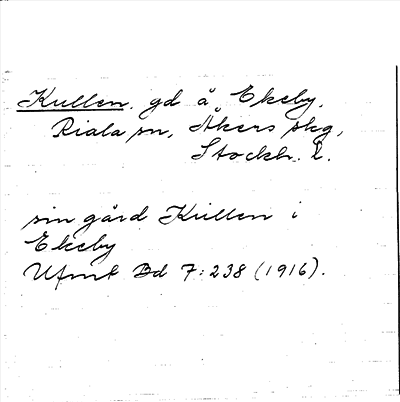 Kullen, gd å Ekeby,
Riala sn, Åkers skg,
Stockh. l.
sin gård Kullen i
Ekeby
Ufmt Bd 7:238 (1916).